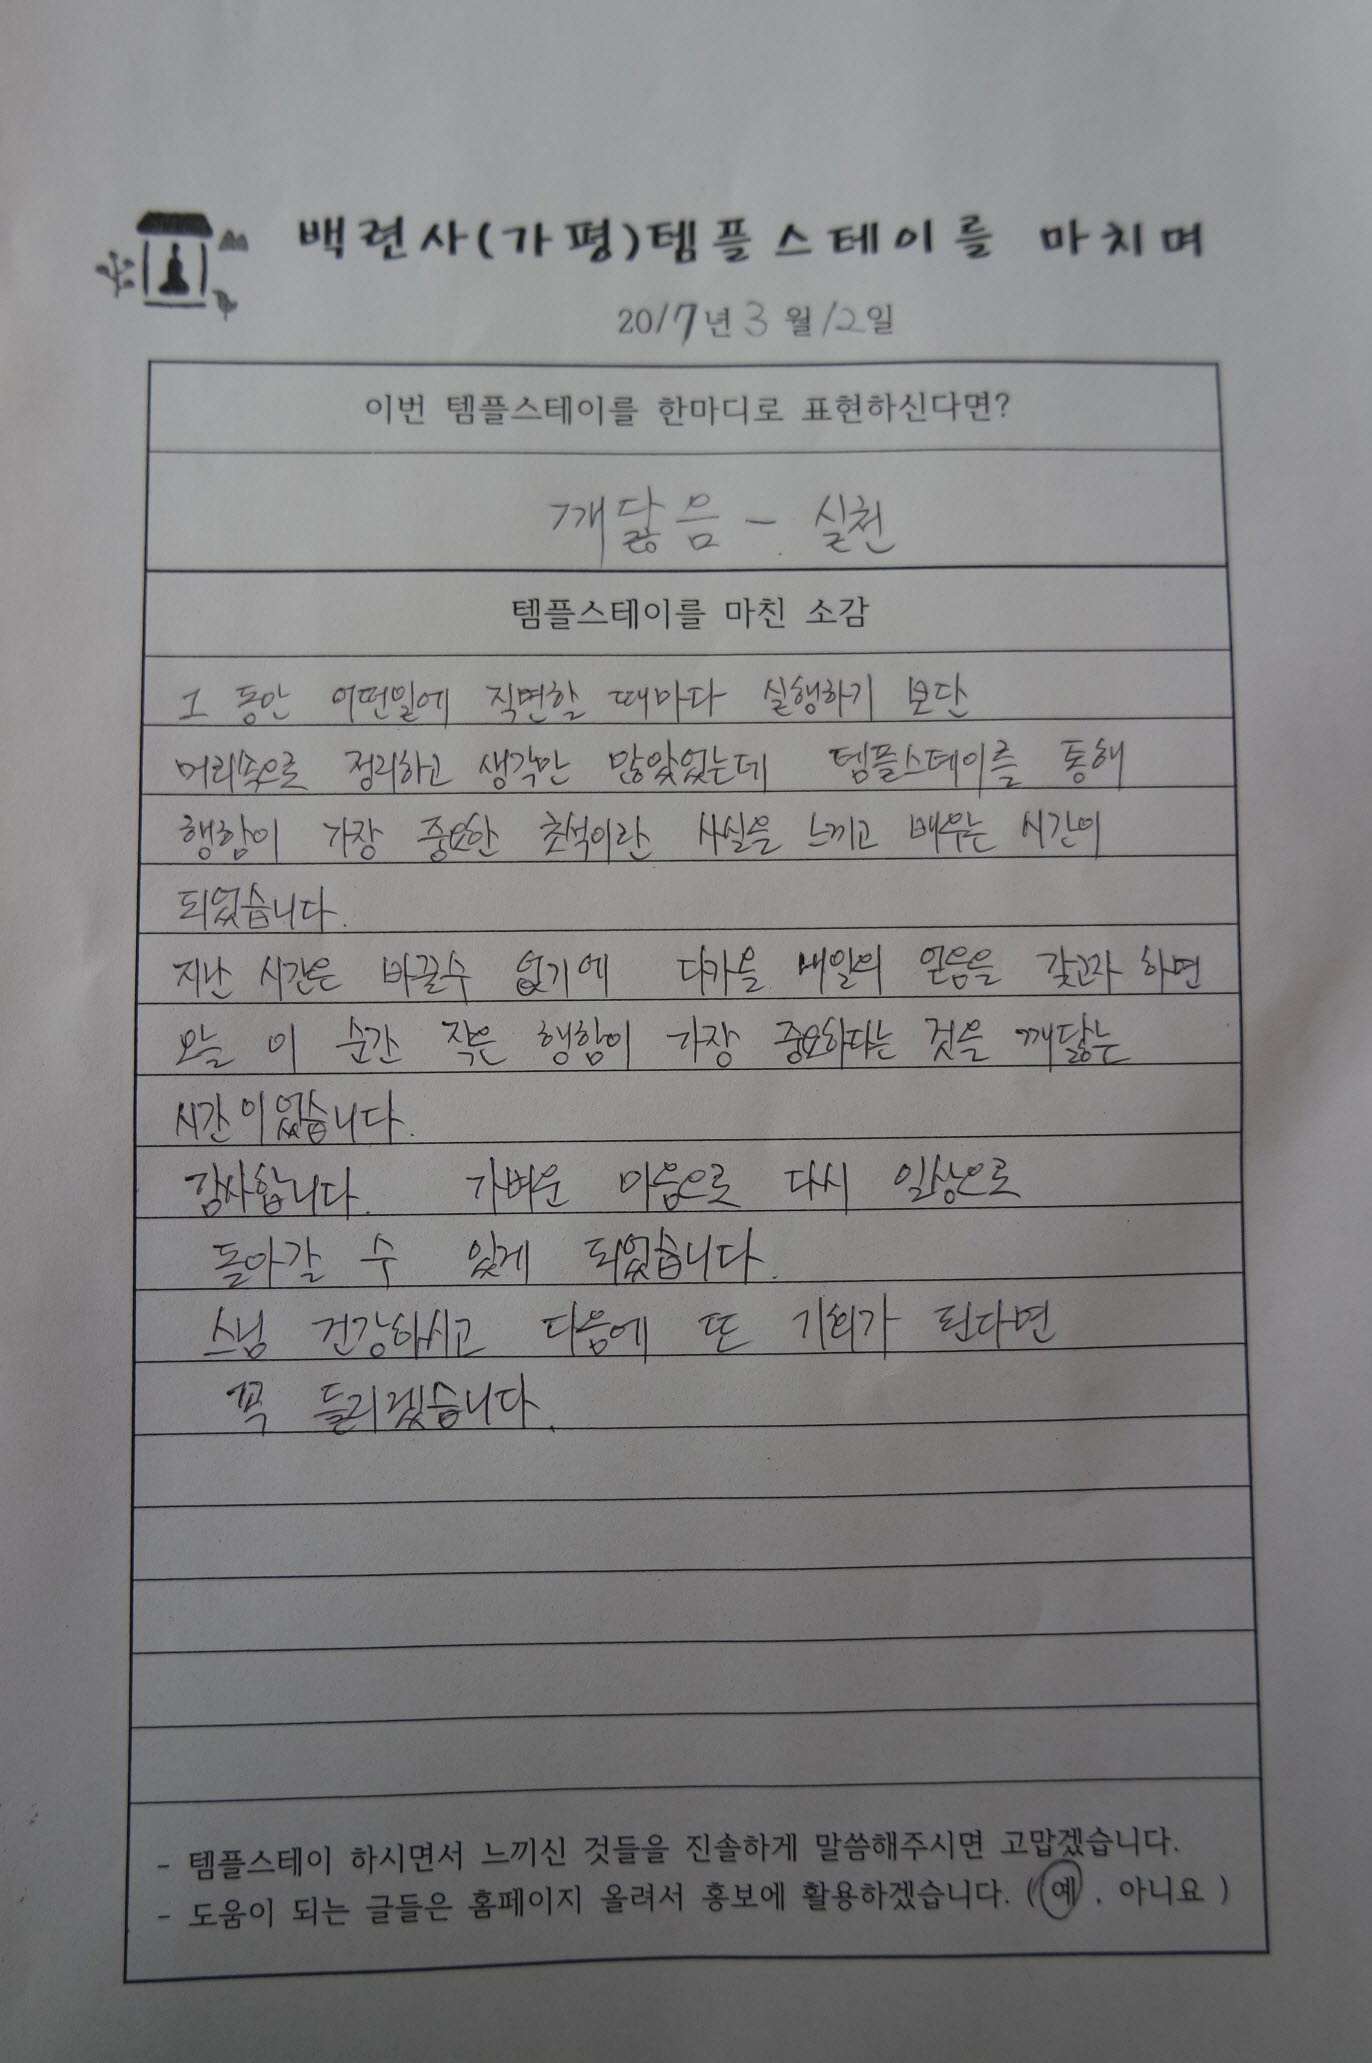 백련사(가평)템플스테이를 마치며
2017년 3월 12일
이번 템플스테이를 한마디로 표현하신다면?
깨닳음 - 실천
템플스테이를 마친 소감
그 동안 어떤일에 직면할 때마다 실행하기 보단
머리속으로 정리하고 생각만 많았었는데 템플스테이를 통해
행함이 가장 중요한 초석이란 사실을 느끼고 배우는 시간이
되었습니다.
지난 시간은 바꿀수 없기에 다가올 내일의 얻음을 갖고자 하면
오늘 이 순간 작은 행함이 가장 중요하다는 것을 깨닳는
시간이었습니다.
감사합니다. 가벼운 마음으로 다시 일상으로
돌아갈 수 있게 되었습니다.
스님 건강하시고 다음에 또 기회가 된다면
꼭 들리겠습니다.
- 템플스테이 하시면서 느끼신 것들을 진솔하게 말씀해주시면 고맙겠습니다.
- 도움이 되는 글들은 홈페이지 올려서 홍보에 활용하겠습니다. ( 예 , 아니요 )